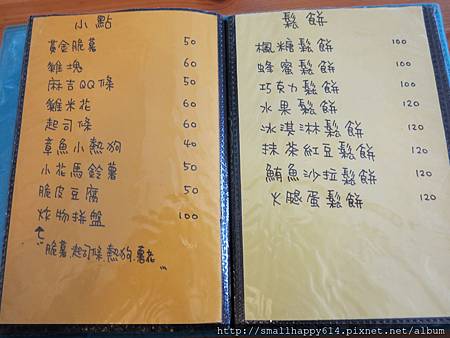 小點
黃金脆薯 50
雞塊 60
麻吉QQ條 50
雞米花 60
起司條 60
章魚小熱狗 40
小花馬鈴薯 50
脆皮豆腐 50
炸物拼盤 100
脆薯.起司條.熱狗.薯花
鬆餅
楓糖鬆餅 100
蜂蜜鬆餅 100
巧克力鬆餅 100
水果鬆餅 120
冰淇淋鬆餅 120
抹茶紅豆鬆餅 120
鮪魚沙拉鬆餅 120
火腿蛋鬆餅 120
http://smallhappy614.pixnet.net/album